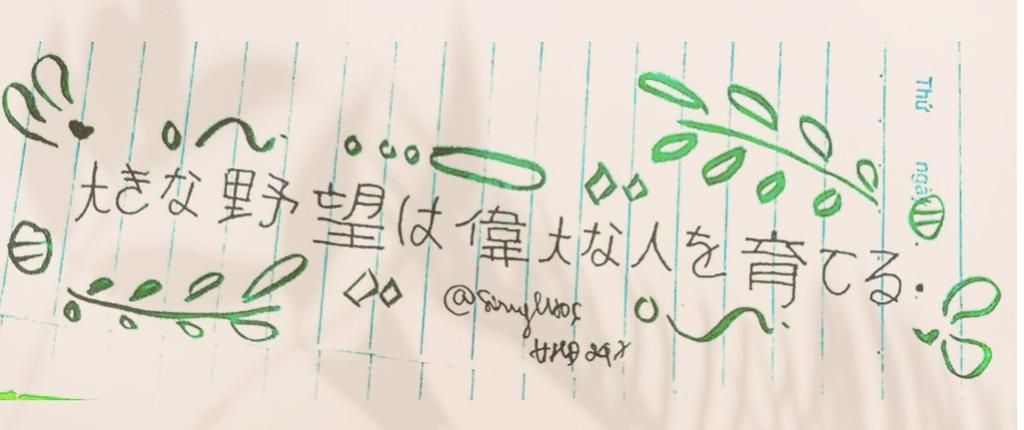 大きな野望は偉大な人を育てる.
Thứ ngày